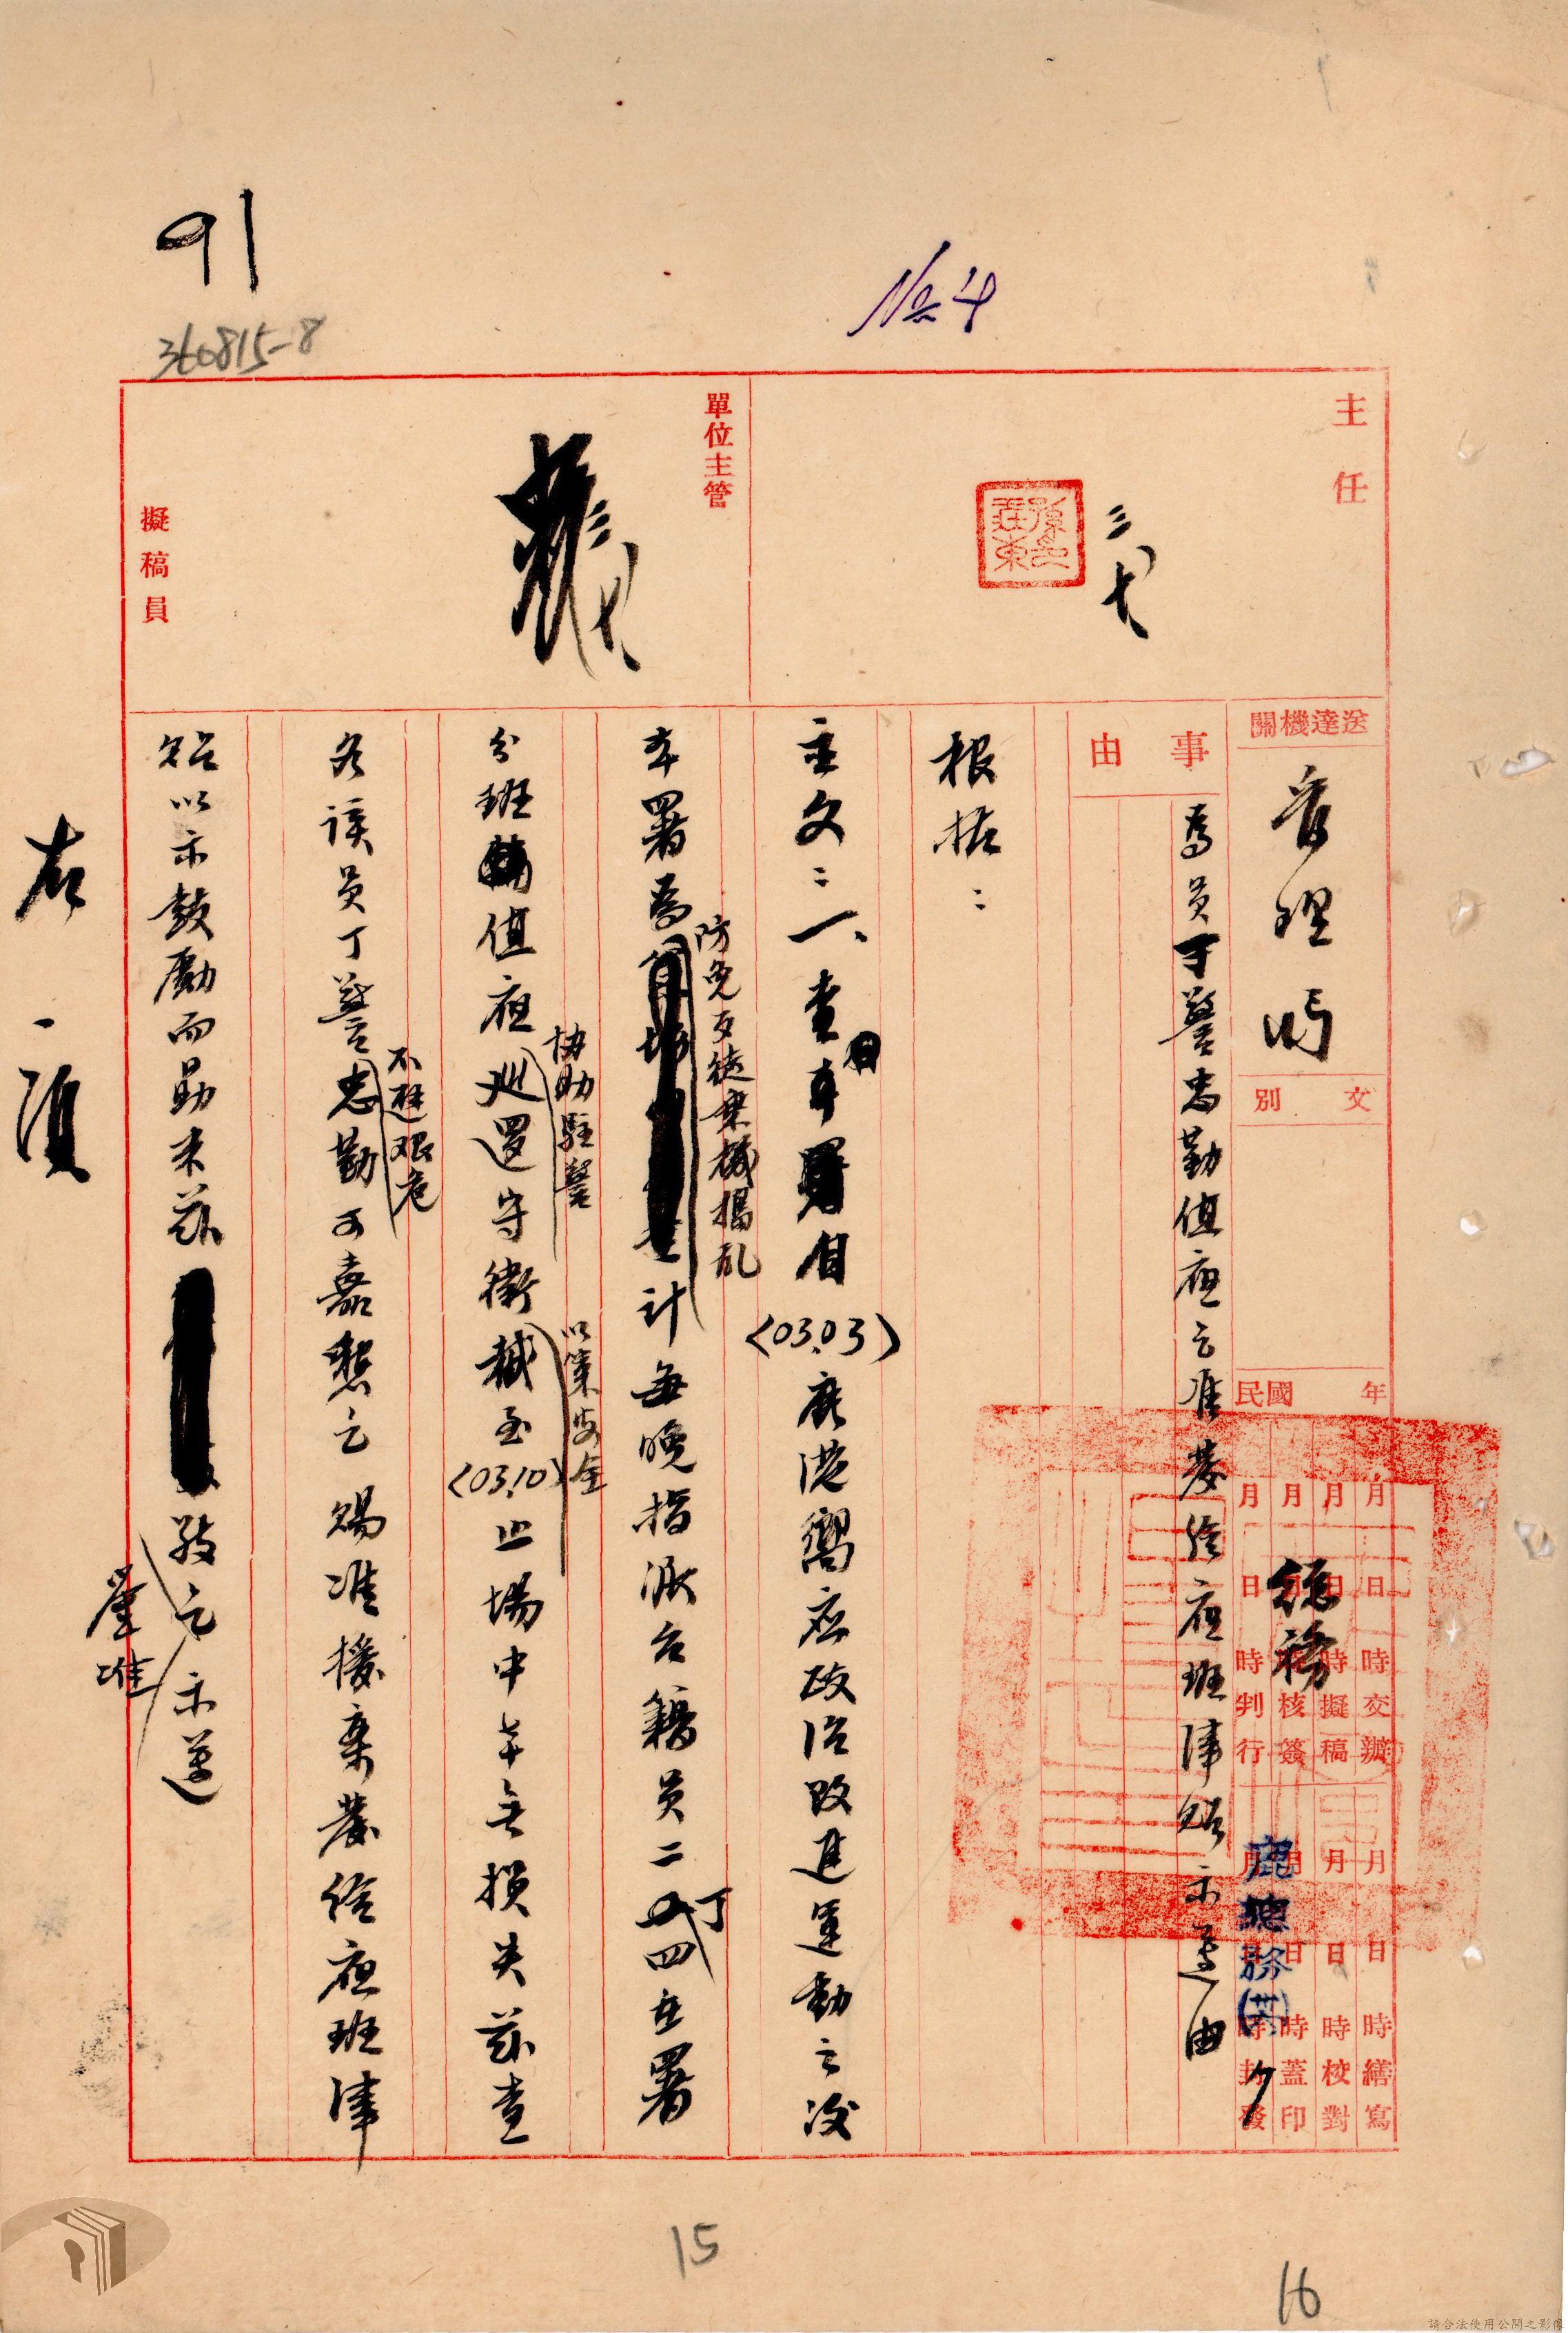 91
360815-8
No 4
主任
三七
單位主管
三七
擬稿員
送達機關
管理
文別
總務
鹿總務
民國 年
月 日 時 交辦
月 日 時 擬稿
月 日 時 核簽
月 日 時 判行
月 日 時 繕寫
月 日 時 校對
月 日 時 蓋印
時 封發
事由
為員丁警忠勤值夜乞准發給夜班津貼示遵由
根據:
主文:一、查本月自(03.03)鹿港響應政治改進運動之後
本署為防免歹徒乘機搗亂計每晚指派台籍員二丁四在署
分班值夜協助駐警巡邏守衛以策安全截至(03.10)止場中幸無損失茲查
各該員丁警不避艰危忠勤可嘉懇乞 賜准援案發給夜班津
貼以示鼓勵而勗未茲 敬乞示遵
鑒准
右 一 須
15
16
請合法使用公開之影像